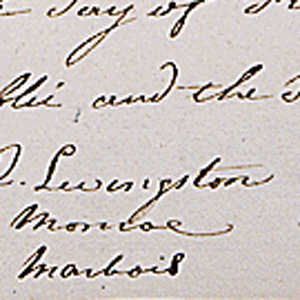 day of
and the
Livingston
Monroe
Marbois